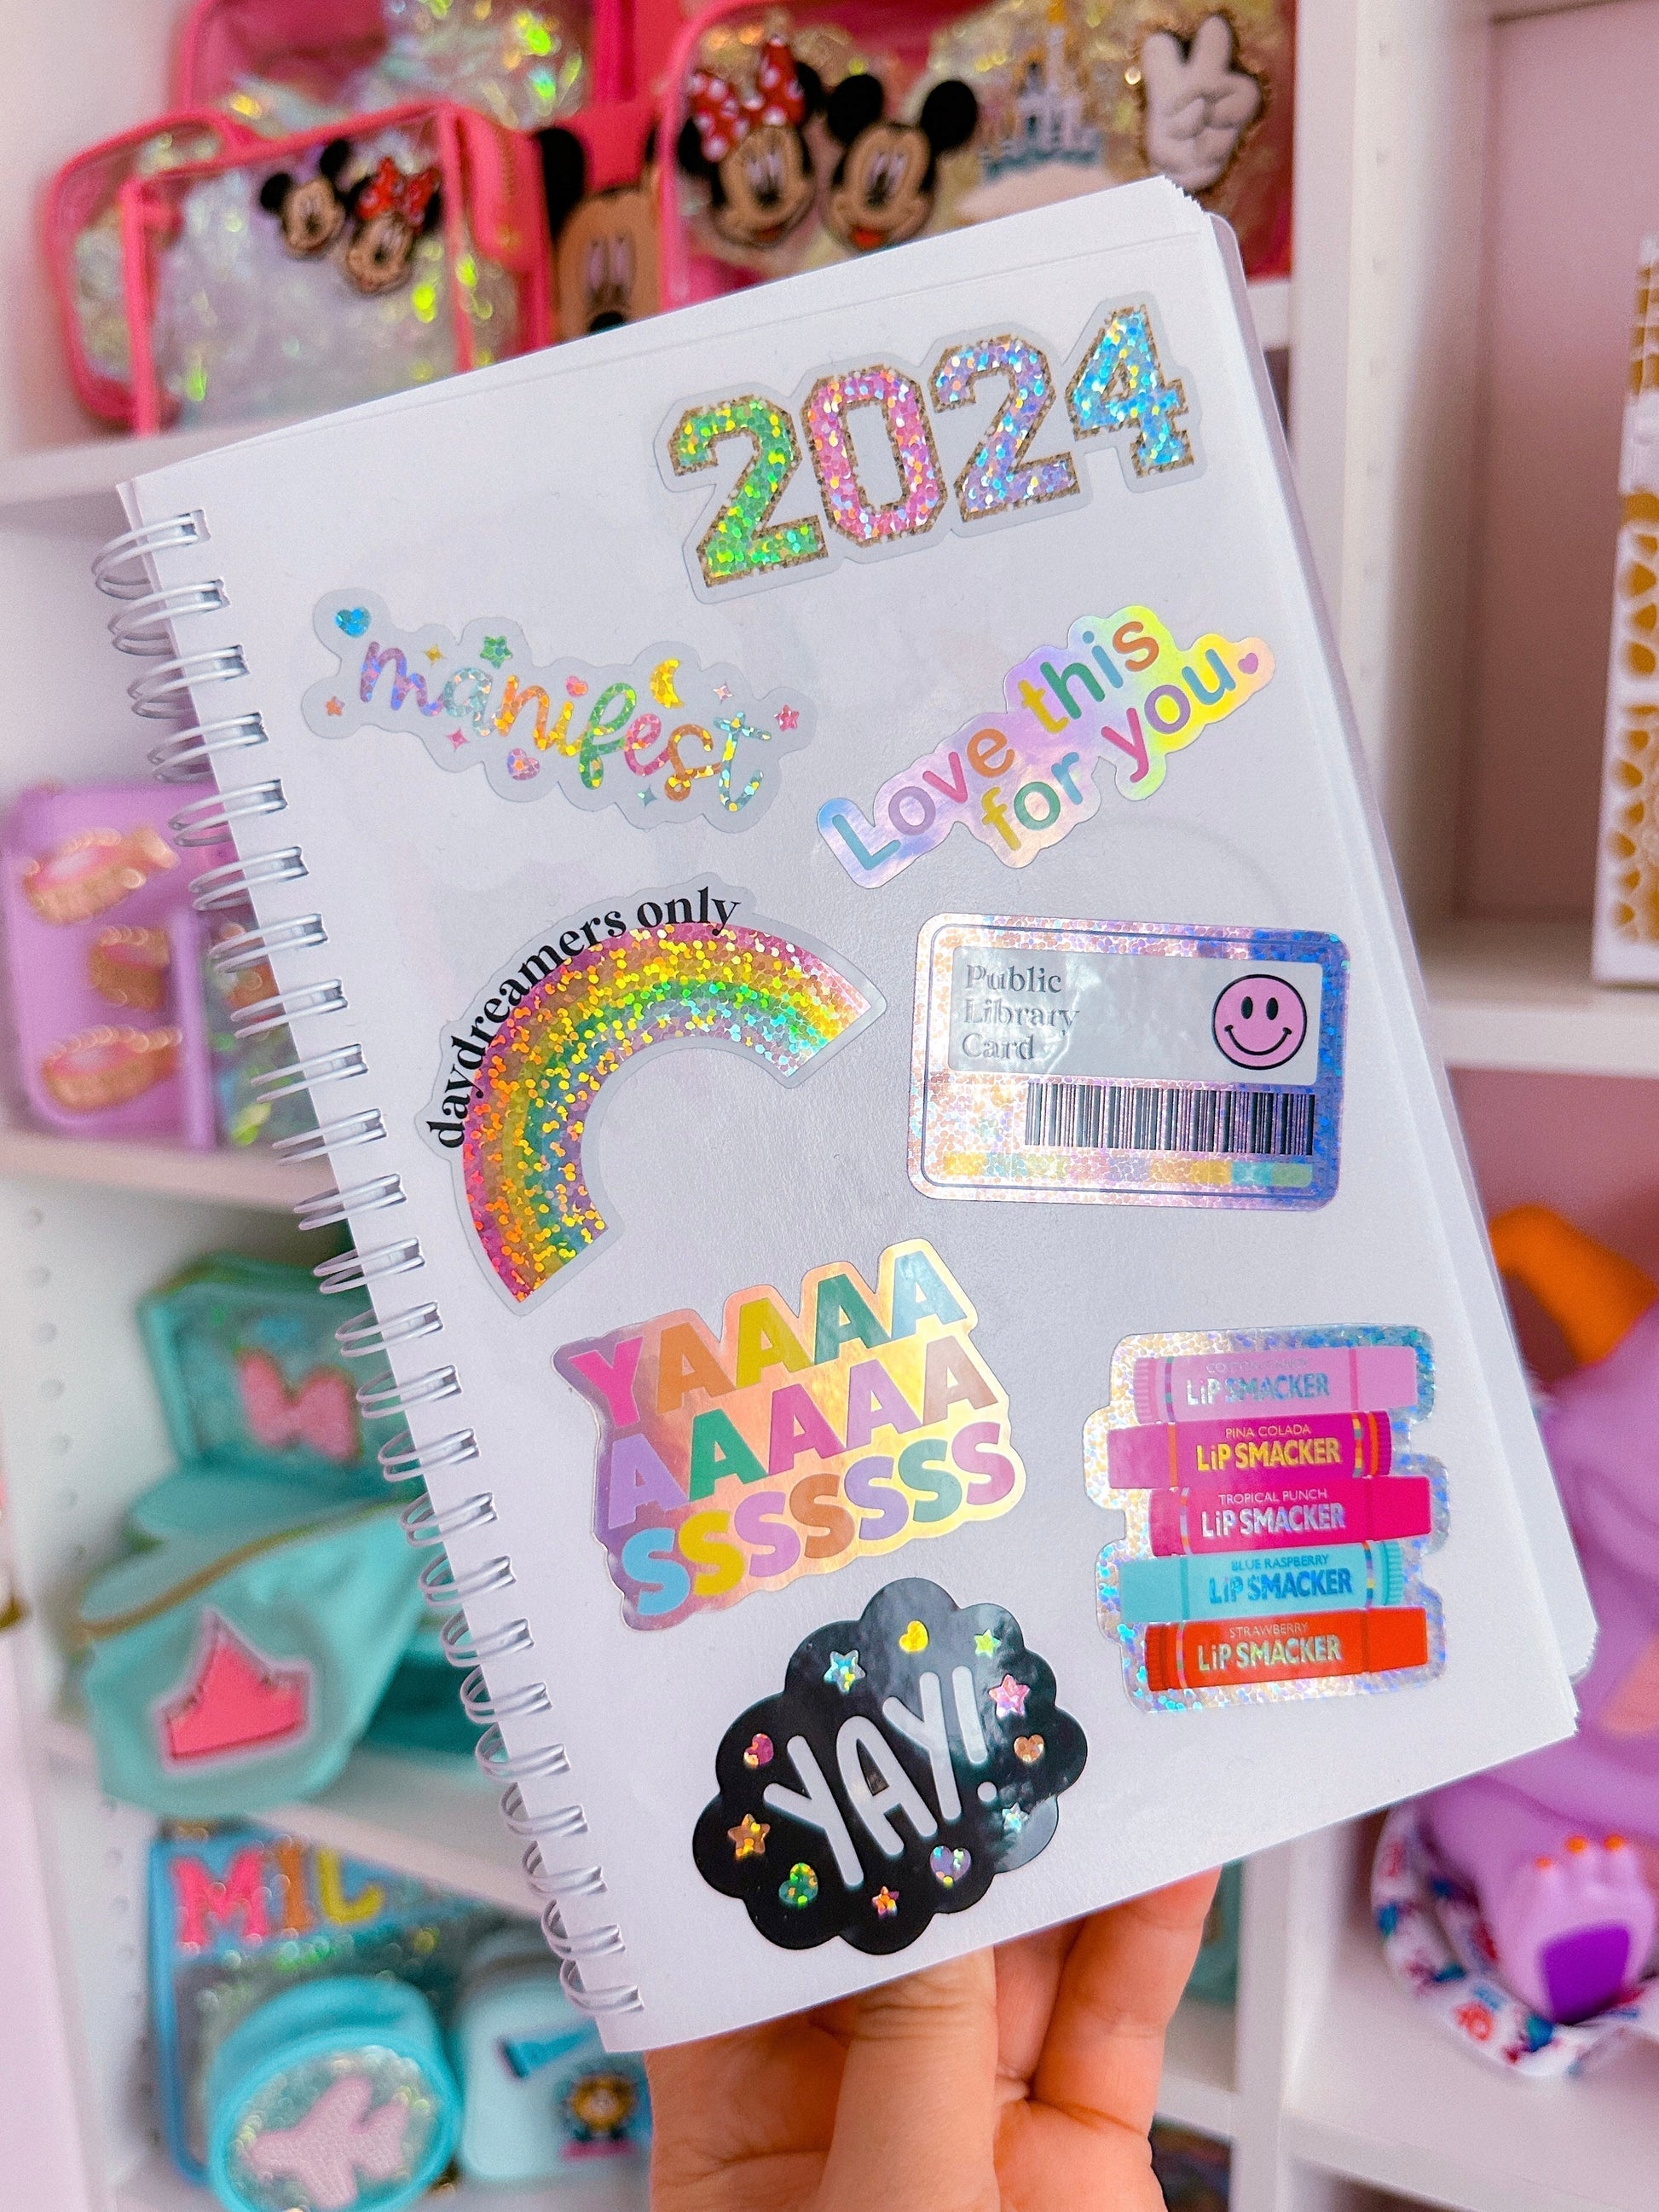 2024
manifest
Love this
for you
daydreamers only
Public
Library
Card
YAAAA
AAAAA
SSSSSSS
COTTON CANDY
LiP SMACKER
PINA COLADA
LiP SMACKER
TROPICAL PUNCH
LiP SMACKER
BLUE RASPBERRY
LiP SMACKER
STRAWBERRY
LiP SMACKER
YAY!